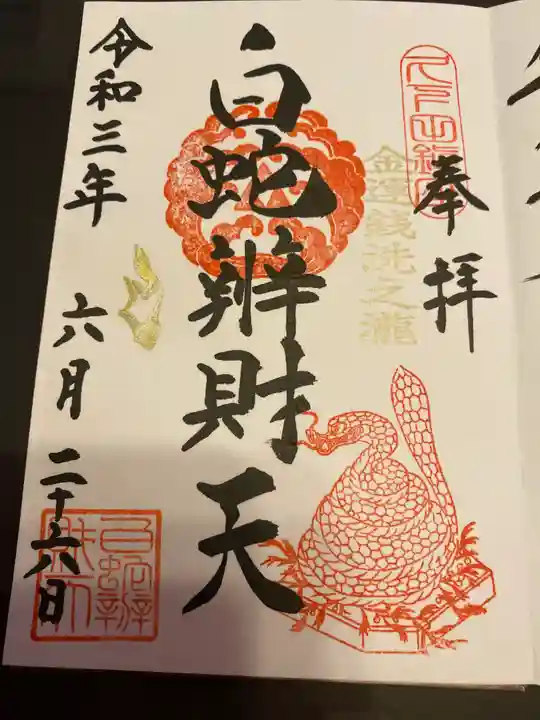 奉拝
金運銭洗之瀧
白蛇辨財天
令和三年 六月二十六日
白蛇辨財天